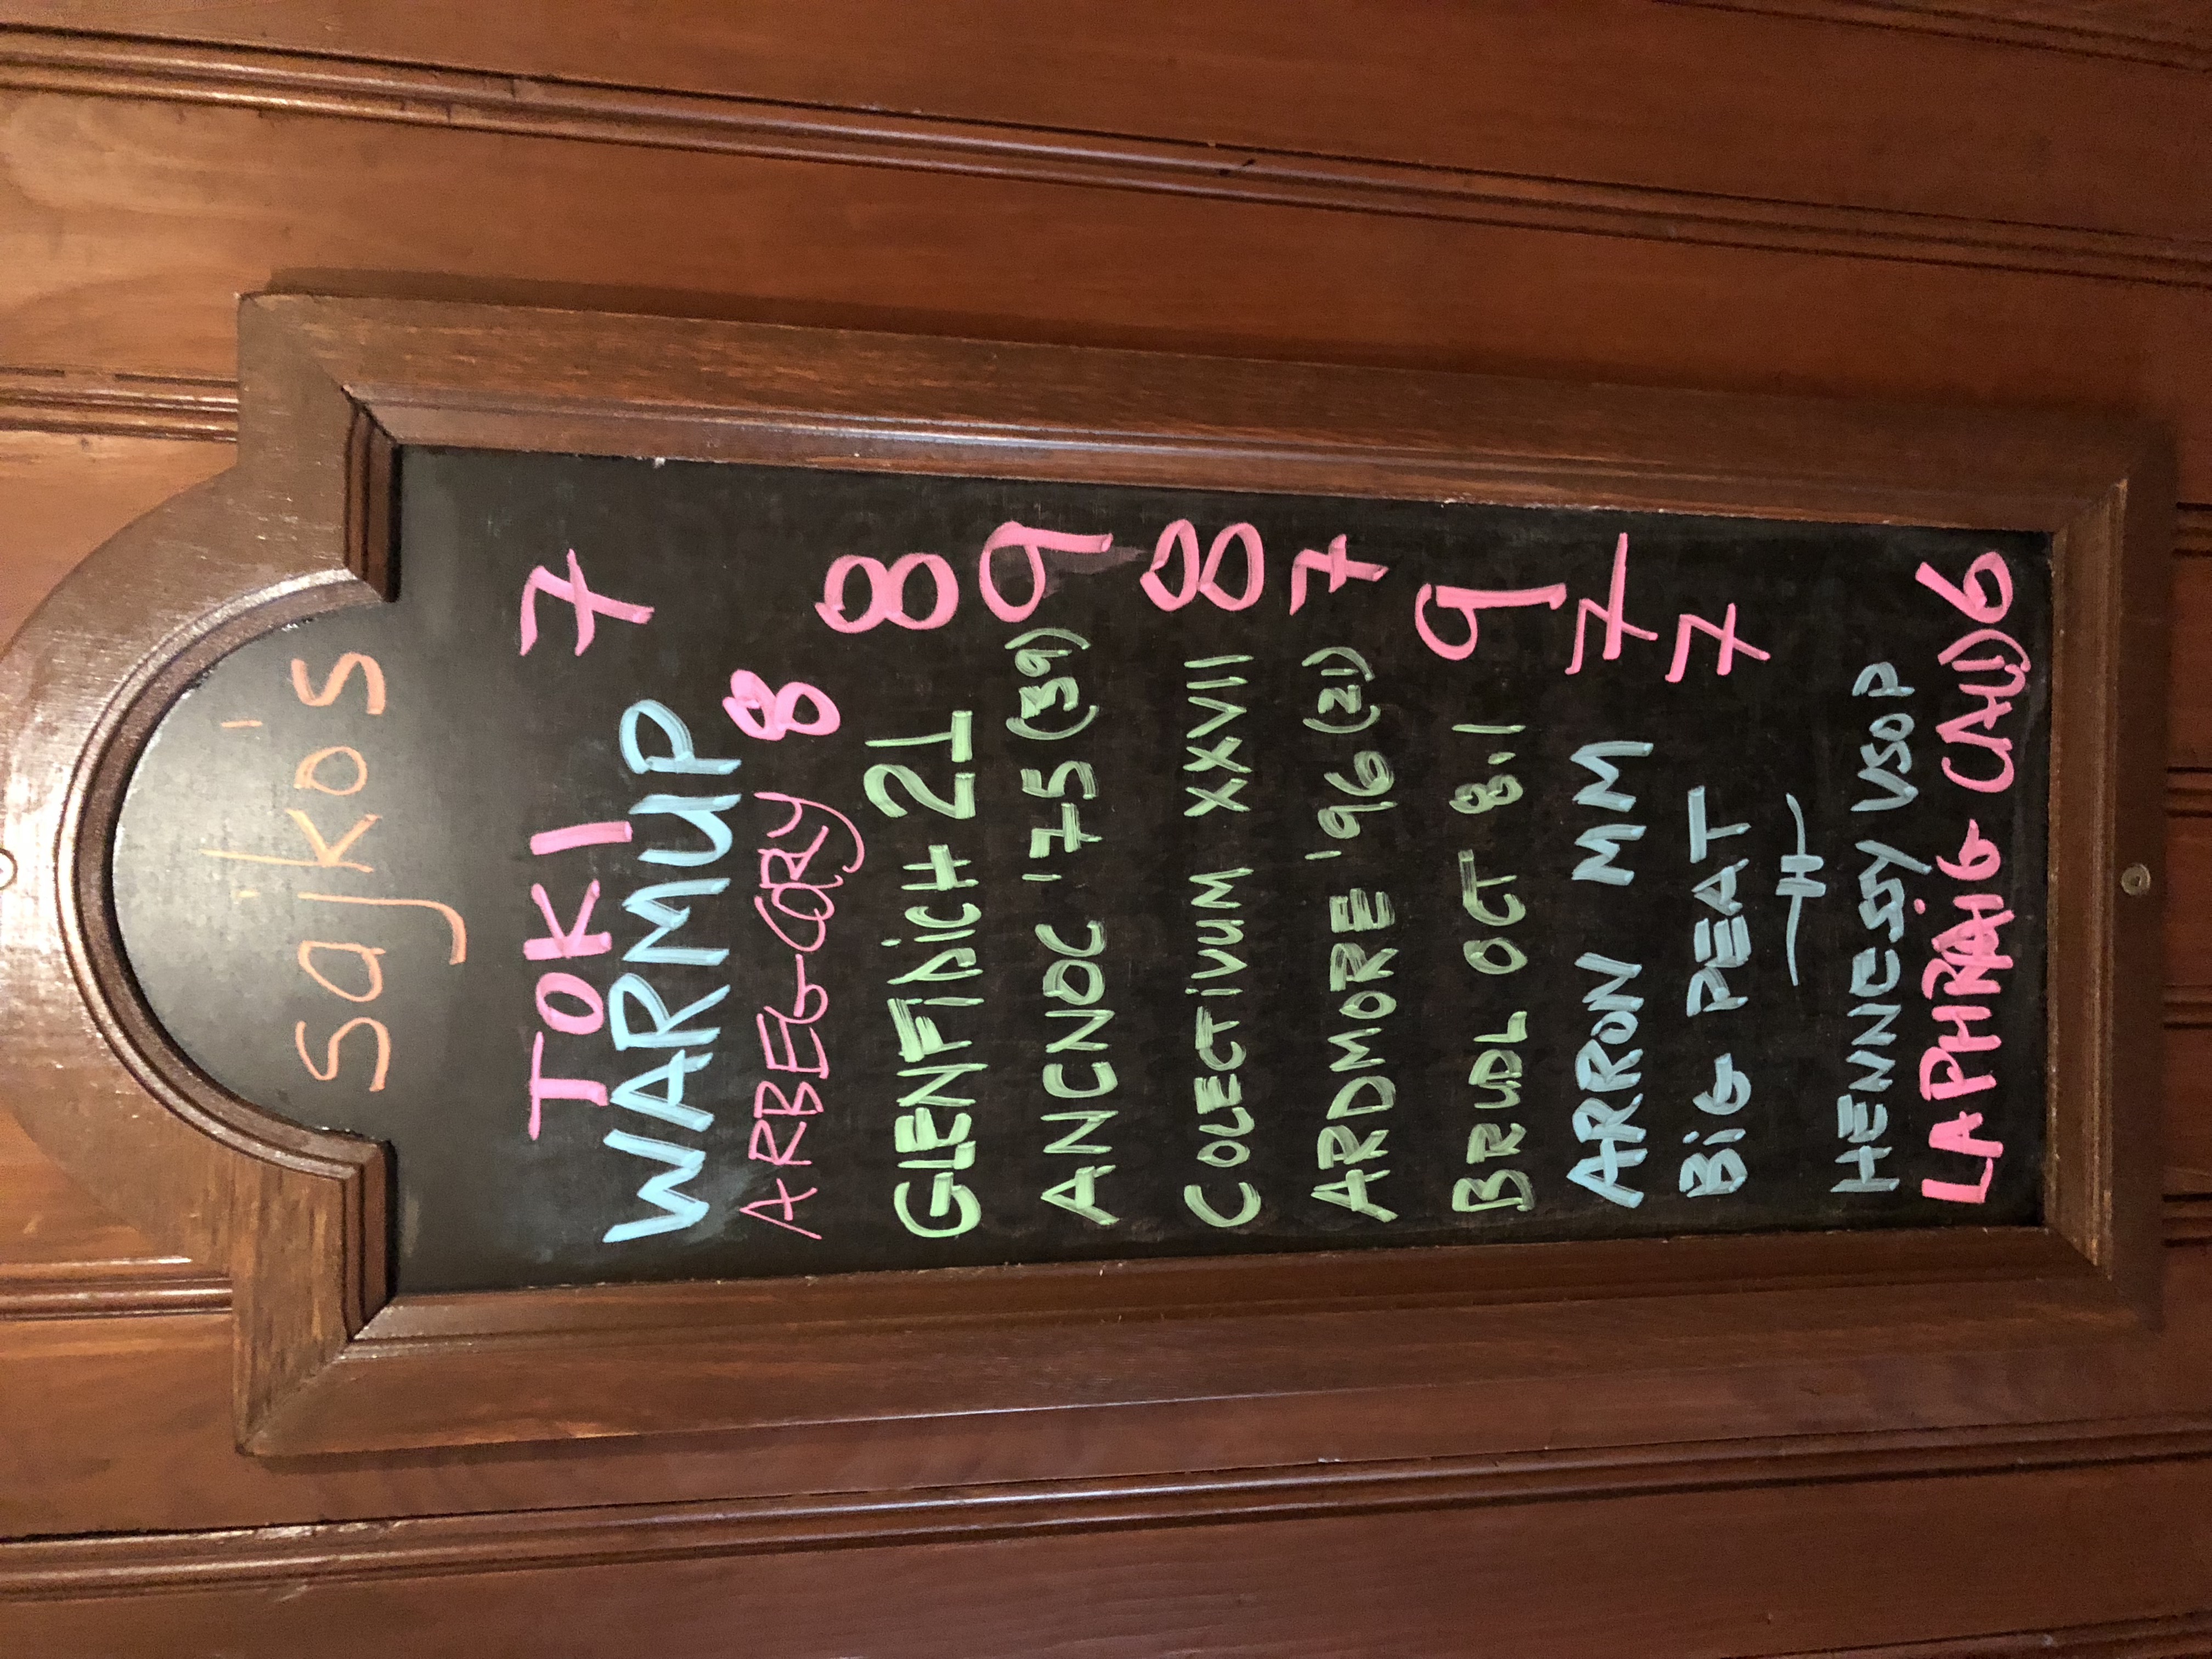 sajko's
TOKI 7
WARMUP
ARBEG-CORY 8
GLENFidiCH 21 8
ANCNOC '75 (39) 9
COLECTiVUM XXVII 8
ARDMORE '96 (21) 7
BRUDL OCT 8.1 9
ARRON MM 7
BiG PEAT 7
HENNESSY VSOP
LAPHRAiG 6